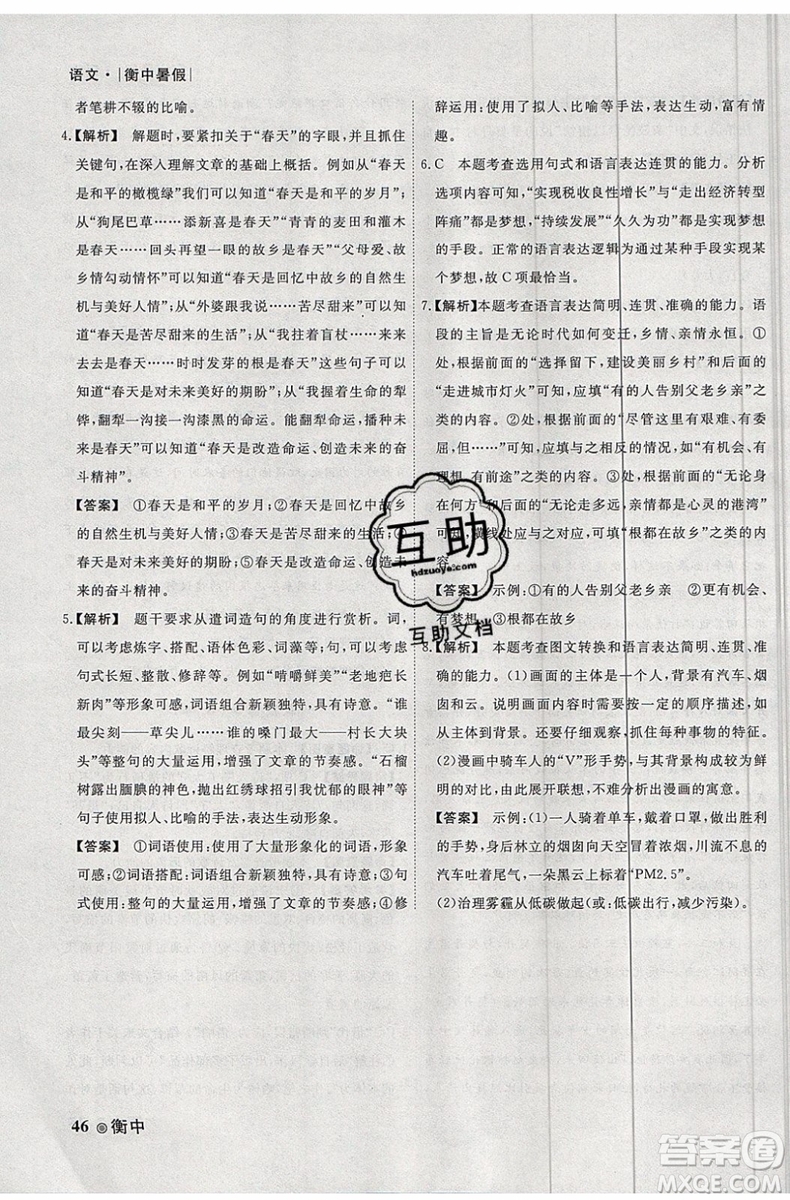 语文·|衡中暑假|
者笔耕不辍的比喻。
4.【解析】　解题时，要紧扣关于“春天”的字眼，并且抓住
关键句，在深入理解文章的基础上概括。例如从“春天
是和平的橄榄绿”我们可以知道“春天是和平的岁月”；
从“狗尾巴草……添新喜是春天”“青青的麦田和灌木
是春天……回头再望一眼的故乡是春天”“父母爱、故
乡情勾动情怀”可以知道“春天是回忆中故乡的自然生
机与美好人情”；从“外婆跟我说……苦尽甘来”可以知
道“春天是苦尽甜来的生活”；从“找寻着盲杖……来来
去去是春天……时时发芽的根是春天”这些句子可以
知道“春天是对未来美好的期盼”；从“春天是生命的犁
铧，翻犁一沟沟漆黑的命运。能翻犁命运的春天才能
来年丰收”可以知道“春天是改造命运、创造未来的奋
斗精神”。
【答案】　①春天是和平的岁月；②春天是回忆中故乡
的自然生机与美好人情；③春天是苦尽甜来的生活；④
春天是对未来美好的期盼；⑤春天是改造命运、创造未
来的奋斗精神。
5.【解析】　题干要求从遣词造句的角度进行赏析。词，
可以考虑炼字、搭配、语体色彩、词藻等；句，可以考虑
句式长短、整散、修辞等。例如“啃嚼鲜美”“老地疤长
新肉”等形象可感，词语组合新颖独特，具有诗意。“谁
最尖刻——草尖儿……谁的嗓门最大——村长大块
头”等整句的大量运用，增强了文章的节奏感。“石榴
树露出腼腆的神色，抛出红绣球招引我忧郁的眼神”等
句子使用拟人、比喻的手法，表达生动形象。
【答案】　①词语使用：使用了大量形象化的词语，形象
可感；②词语搭配：词语组合新颖独特，具有诗意；③句
式使用：整句的大量运用，增强了文章的节奏感；④修
辞运用：使用了拟人、比喻等手法，表达生动，富有情
趣。
6.C　本题考查选用句式和语言表达连贯的能力。分析
选项内容可知，“实现税收良性增长”与“走出经济转型
阵痛”都是梦想，“持续发展”“久久为功”是实现梦想
的手段。正常的语言表达逻辑为通过某种手段实现某
个梦想，故C项最恰当。
7.【解析】本题考查语言表达简明、连贯、准确的能力。语
段的主旨是无论时代如何变迁，乡情、亲情永恒。①
处，根据前面的“选择留下，建设美丽乡村”和后面的
“走进城市灯火”可知，应填“有的人告别父老乡亲”之
类的内容。②处，根据前面的“尽管这里有艰难、有委
屈，但……”可知，应填与之相反的情况，如“有机会、有
理想、有前途”之类的内容。③处，根据前面的“无论身
在何方”和后面的“无论走多远，亲情都是心灵的港湾”
可知，横线处应与之对应，可填“根都在故乡”之类的内
容。
【答案】　示例：①有的人告别父老乡亲　②更有机会、
有梦想　③根都在故乡
8.【解析】　本题考查图文转换和语言表达简明、连贯、准
确的能力。(1)画面的主体是一个人，背景有汽车、烟
囱和云。解题时，要注意按照一定的顺序描述，如
从主体到背景。还要仔细观察，抓住每种事物的特征。
(2)漫画中骑车人的“V”形手势，与其背景形成了鲜
明的对比，由此展开联想，不难分析出漫画的寓意。
【答案】　示例：(1)一人骑着单车，戴着口罩，做出胜利
的手势，身后林立的烟囱向天空冒着浓烟，川流不息的
汽车吐着尾气，一朵黑云上标着“PM2.5”。
(2)治理雾霾从低碳做起(或：低碳出行，减少污染)。
互助
hdzuoye.com
互助文档
46 衡中
答案圈
MXQE.COM